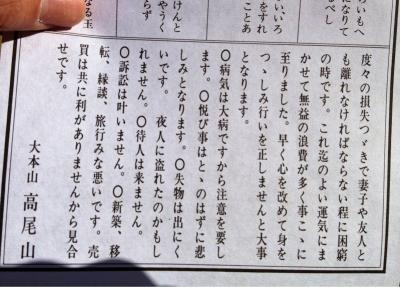 らいもへ
になりて
るべし
いいろ
をすれ
ことあ
けんと
やうく
らず
なる玉
度々の損失つゞきで妻子や友人と
も離れなければならない程に困窮
の時です。これ迄のよい運気にま
かせて無益の浪費が多く事こゝに
至りました。早く心を改めて身を
つゝしみ行いを正しませんと大事
となります。
〇病気は大病ですから注意を要し
ます。〇悦び事はとゝのはずに悲
しみとなります。〇失物は出にく
いです。 夜人に盗れたのかもし
れません。〇待人は来ません。
〇訴訟は叶いません。〇新築、移
転、縁談、旅行みな悪いです。売
買は共に利がありませんから見合
せです。
大本山 高尾山